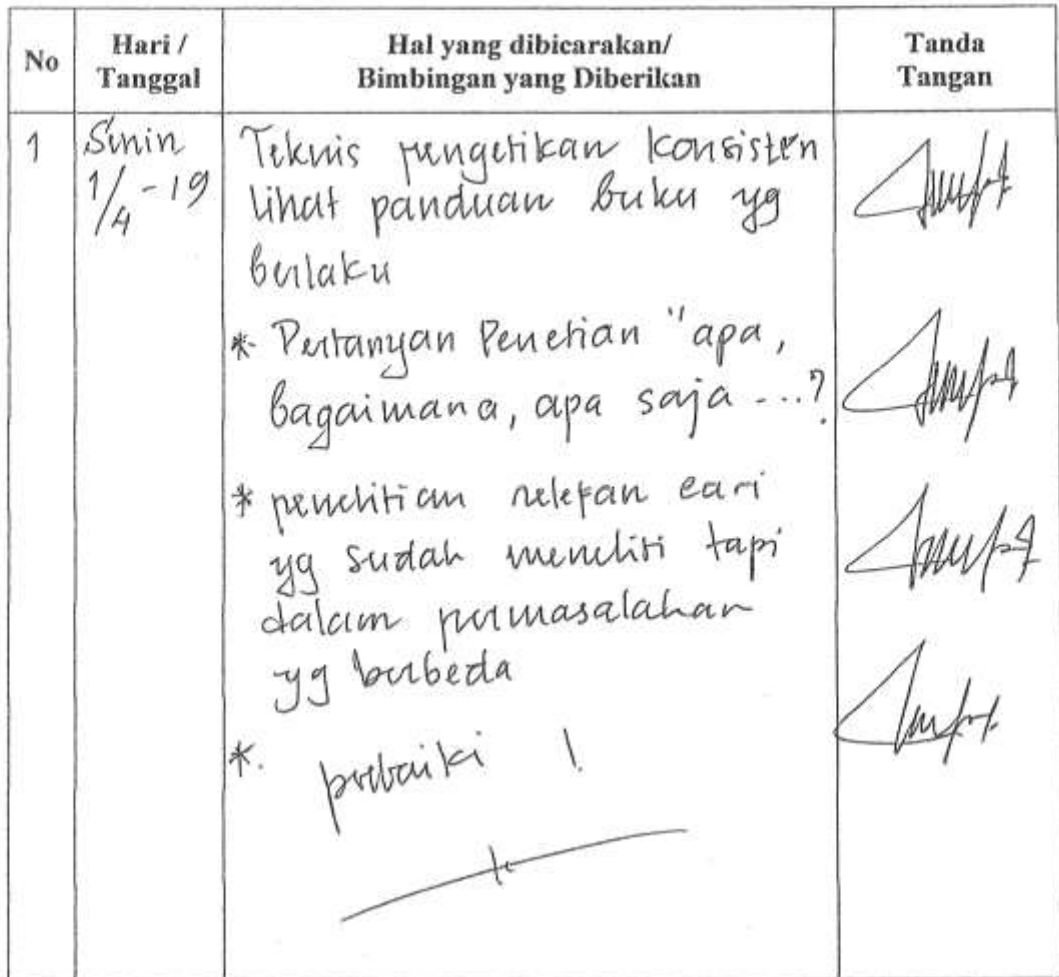 No
Hari /
Tanggal
Hal yang dibicarakan/
Bimbingan yang Diberikan
Tanda
Tangan
1
Senin
1/4 - 19
Teknis pengetikan konsisten
lihat panduan buku yg
berlaku
*- Pertanyan Penetian "apa,
bagaimana, apa saja ...?
* penelitian relefan cari
yg sudah meneliti tapi
dalam permasalahan
yg berbeda
*. perbaiki !